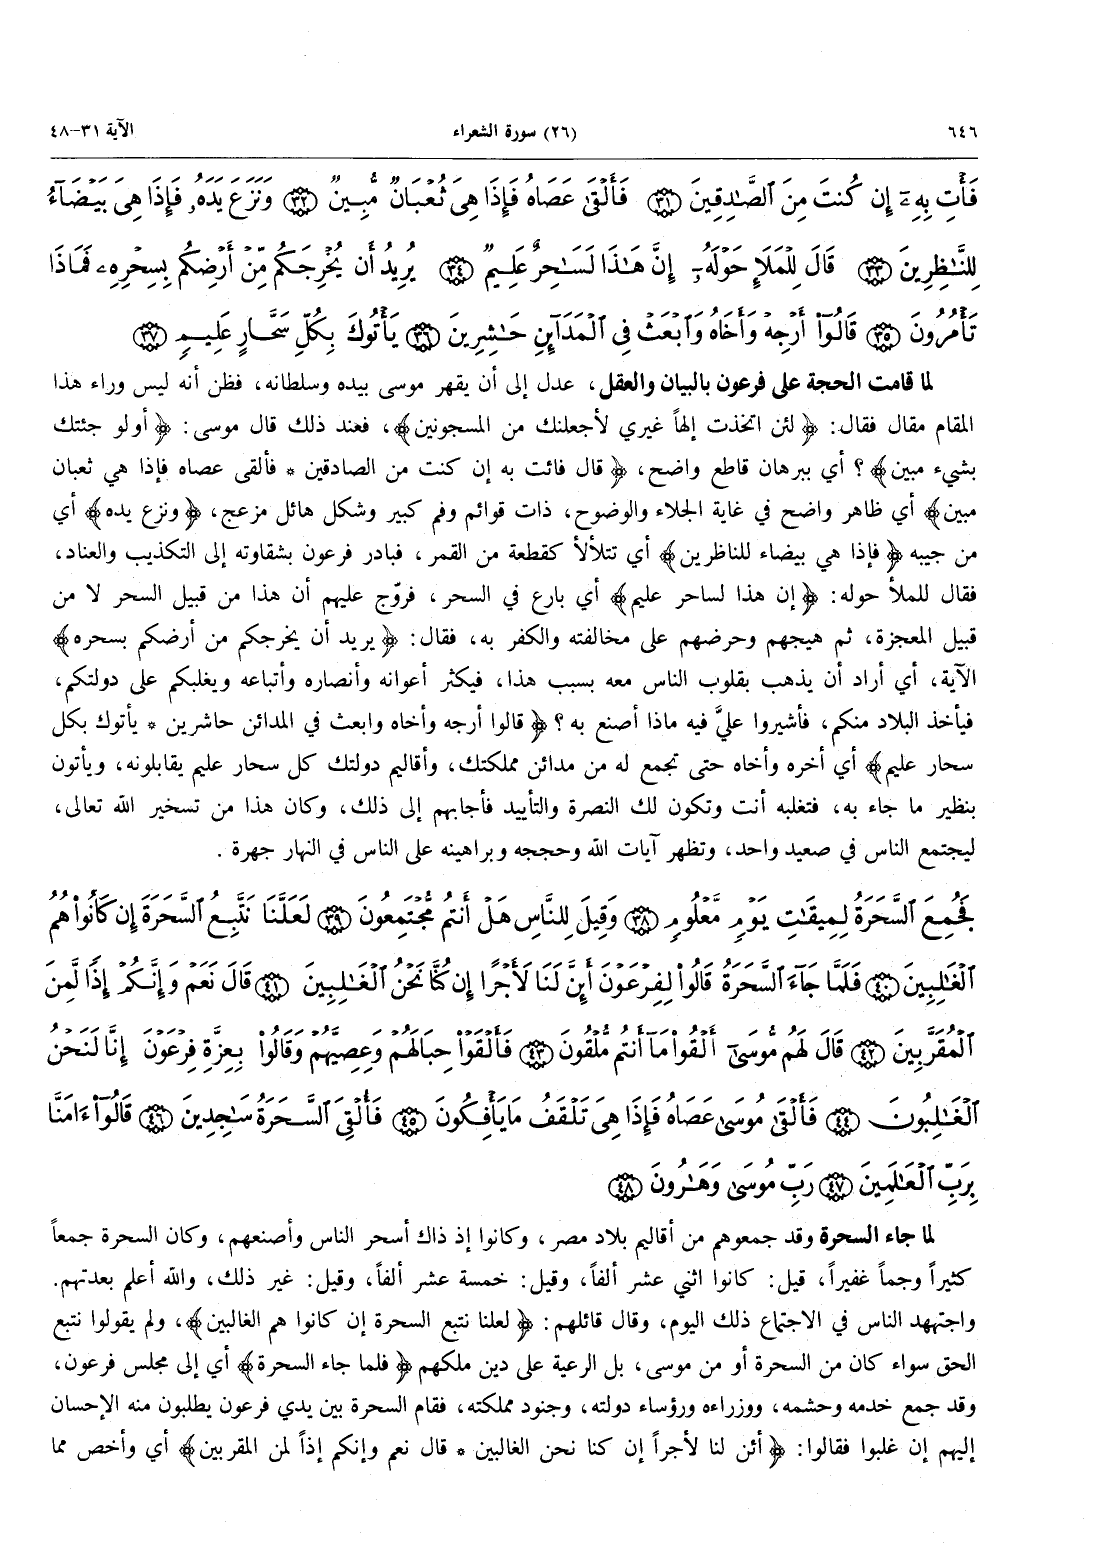 ٦٤٦ (٢٦) سورة الشعراء الآية ٣١–٤٨
فَأْتِ بِهِۦٓ إِن كُنتَ مِنَ ٱلصَّٰدِقِينَ ﴿٣١﴾ فَأَلْقَىٰ عَصَاهُ فَإِذَا هِىَ ثُعْبَانٌ مُّبِينٌ ﴿٣٢﴾ وَنَزَعَ يَدَهُۥ فَإِذَا هِىَ بَيْضَآءُ
لِلنَّٰظِرِينَ ﴿٣٣﴾ قَالَ لِلْمَلَإِ حَوْلَهُۥٓ إِنَّ هَٰذَا لَسَٰحِرٌ عَلِيمٌ ﴿٣٤﴾ يُرِيدُ أَن يُخْرِجَكُم مِّنْ أَرْضِكُم بِسِحْرِهِۦ فَمَاذَا
تَأْمُرُونَ ﴿٣٥﴾ قَالُوٓا۟ أَرْجِهْ وَأَخَاهُ وَٱبْعَثْ فِى ٱلْمَدَآئِنِ حَٰشِرِينَ ﴿٣٦﴾ يَأْتُوكَ بِكُلِّ سَحَّارٍ عَلِيمٍ ﴿٣٧﴾
لما قامت الحجة على فرعون بالبيان والعقل، عدل إلى أن يقهر موسى بيده وسلطانه، فظن أنه ليس وراء هذا
المقام مقال فقال: ﴿لئن اتخذت إلهاً غيري لأجعلنك من المسجونين﴾، فعند ذلك قال موسى: ﴿أولو جئتك
بشيء مبين﴾؟ أي ببرهان قاطع واضح، ﴿قال فائت به إن كنت من الصادقين * فألقى عصاه فإذا هي ثعبان
مبين﴾ أي ظاهر واضح في غاية الجلاء والوضوح، ذات قوائم وفم كبير وشكل هائل مزعج، ﴿ونزع يده﴾ أي
من جيبه ﴿فإذا هي بيضاء للناظرين﴾ أي تتلألأ كقطعة من القمر، فبادر فرعون بشقاوته إلى التكذيب والعناد،
فقال للملأ حوله: ﴿إن هذا لساحر عليم﴾ أي بارع في السحر، فروّج عليهم أن هذا من قبيل السحر لا من
قبيل المعجزة، ثم هيجهم وحرضهم على مخالفته والكفر به، فقال: ﴿يريد أن يخرجكم من أرضكم بسحره﴾
الآية، أي أراد أن يذهب بقلوب الناس معه بسبب هذا، فيكثر أعوانه وأنصاره وأتباعه ويغلبكم على دولتكم،
فيأخذ البلاد منكم، فأشيروا عليَّ فيه ماذا أصنع به؟ ﴿قالوا أرجه وأخاه وابعث في المدائن حاشرين * يأتوك بكل
سحار عليم﴾ أي أخره وأخاه حتى تجمع له من مدائن مملكتك، وأقاليم دولتك كل سحار عليم يقابلونه، ويأتون
بنظير ما جاء به، فتغلبه أنت وتكون لك النصرة والتأييد فأجابهم إلى ذلك، وكان هذا من تسخير الله تعالى،
ليجتمع الناس في صعيد واحد، وتظهر آيات الله وحججه وبراهينه على الناس في النهار جهرة.
فَجُمِعَ ٱلسَّحَرَةُ لِمِيقَٰتِ يَوْمٍ مَّعْلُومٍ ﴿٣٨﴾ وَقِيلَ لِلنَّاسِ هَلْ أَنتُم مُّجْتَمِعُونَ ﴿٣٩﴾ لَعَلَّنَا نَتَّبِعُ ٱلسَّحَرَةَ إِن كَانُوا۟ هُمُ
ٱلْغَٰلِبِينَ ﴿٤٠﴾ فَلَمَّا جَآءَ ٱلسَّحَرَةُ قَالُوا۟ لِفِرْعَوْنَ أَئِنَّ لَنَا لَأَجْرًا إِن كُنَّا نَحْنُ ٱلْغَٰلِبِينَ ﴿٤١﴾ قَالَ نَعَمْ وَإِنَّكُمْ إِذًا لَّمِنَ
ٱلْمُقَرَّبِينَ ﴿٤٢﴾ قَالَ لَهُم مُّوسَىٰٓ أَلْقُوا۟ مَآ أَنتُم مُّلْقُونَ ﴿٤٣﴾ فَأَلْقَوْا۟ حِبَالَهُمْ وَعِصِيَّهُمْ وَقَالُوا۟ بِعِزَّةِ فِرْعَوْنَ إِنَّا لَنَحْنُ
ٱلْغَٰلِبُونَ ﴿٤٤﴾ فَأَلْقَىٰ مُوسَىٰ عَصَاهُ فَإِذَا هِىَ تَلْقَفُ مَا يَأْفِكُونَ ﴿٤٥﴾ فَأُلْقِىَ ٱلسَّحَرَةُ سَٰجِدِينَ ﴿٤٦﴾ قَالُوٓا۟ ءَامَنَّا
بِرَبِّ ٱلْعَٰلَمِينَ ﴿٤٧﴾ رَبِّ مُوسَىٰ وَهَٰرُونَ ﴿٤٨﴾
لما جاء السحرة وقد جمعوهم من أقاليم بلاد مصر، وكانوا إذ ذاك أسحر الناس وأصنعهم، وكان السحرة جمعاً
كثيراً وجماً غفيراً، قيل: كانوا اثني عشر ألفاً، وقيل: خمسة عشر ألفاً، وقيل: غير ذلك، والله أعلم بعدتهم.
واجتهد الناس في الاجتماع ذلك اليوم، وقال قائلهم: ﴿لعلنا نتبع السحرة إن كانوا هم الغالبين﴾، ولم يقولوا نتبع
الحق سواء كان من السحرة أو من موسى، بل الرعية على دين ملكهم ﴿فلما جاء السحرة﴾ أي إلى مجلس فرعون،
وقد جمع خدمه وحشمه، ووزراءه ورؤساء دولته، وجنود مملكته، فقام السحرة بين يدي فرعون يطلبون منه الإحسان
إليهم إن غلبوا فقالوا: ﴿أئن لنا لأجراً إن كنا نحن الغالبين * قال نعم وإنكم إذاً لمن المقربين﴾ أي وأخص مما